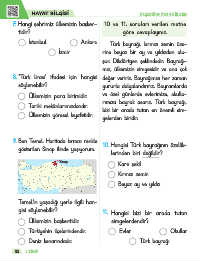 HAYAT BİLGİSİ
7. Hangi şehrimiz ülkemizin başken-
tidir?
İstanbul
Ankara
İzmir
8. "Türk lirası" ifadesi için hangisi
söylenebilir?
Ülkemizin para birimidir.
Tarihi mekânlarımızdandır.
Ülkemizin yöresel kıyafetidir.
9. Ben Temel. Haritada kırmızı renkle
gösterilen Sinop ilinde yaşıyorum.
Temel'in yaşadığı yerle ilgili han-
gisi söylenebilir?
Ülkemizin başkentidir.
Türkiye'nin ilçelerindendir.
Deniz kenarındadır.
10 ve 11. soruları verilen metne
göre cevaplayınız.
Türk bayrağı, kırmızı zemin üze-
rine beyaz bir ay ve yıldızdan olu-
şur. Dikdörtgen şeklindedir. Bayrağı-
mız, ülkemizin simgesidir ve ona çok
değer veririz. Bayrağımızı her zaman
gururla dalgalandırırız. Bayramlarda
ve özel günlerde evlerimize, okulla-
rımıza bayrak asarız. Türk bayrağı,
bizi bir arada tutan en önemli sim-
gelerden biridir.
10. Hangisi Türk bayrağının özellik-
lerinden biri değildir?
Kare şekli
Kırmızı zemin
Beyaz ay ve yıldız
11. Hangisi bizi bir arada tutan
simgelerdendir?
Evler
Okullar
Türk bayrağı